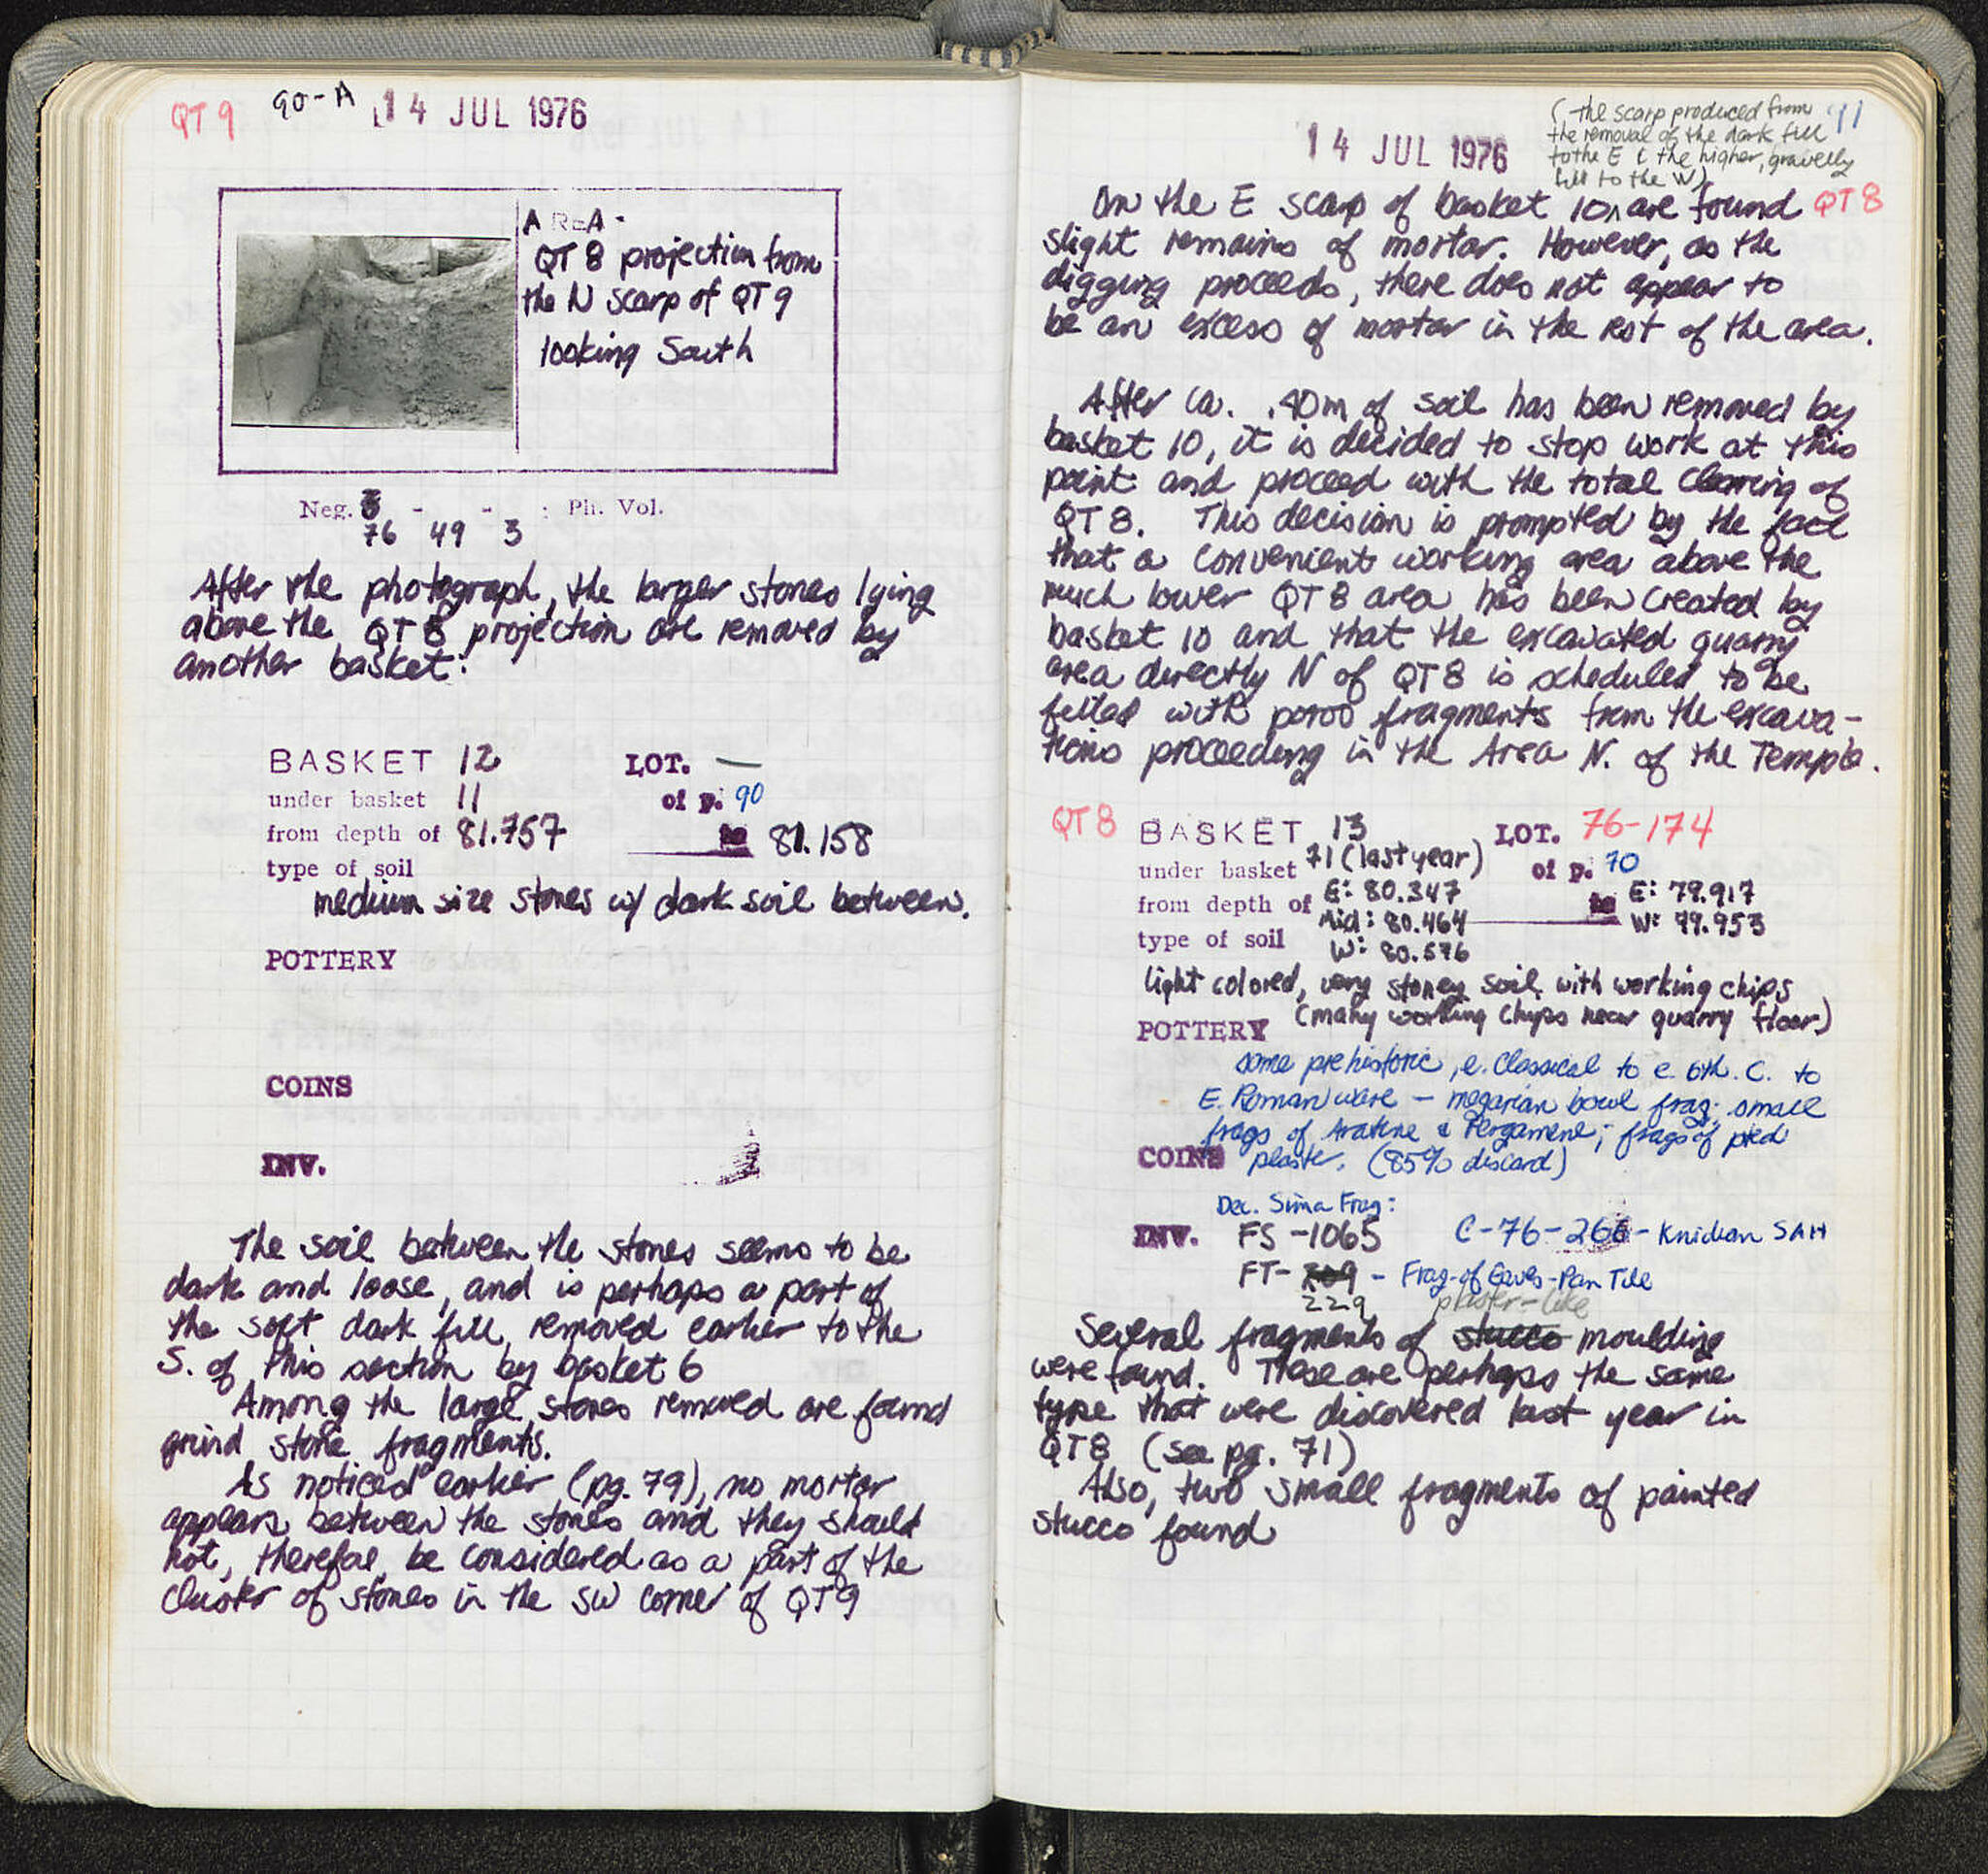 QT 9 90-A 14 JUL 1976
AREA-
QT 8 projection from
the N scarp of QT 9
looking South
Neg. - - : Ph. Vol.
76 49 3
After the photograph, the larger stones lying
above the QT 8 projection are removed by
another basket:
BASKET 12 LOT. —
under basket 11 of p. 90
from depth of 81.757 to 81.158
type of soil
medium size stones w/ dark soil between.
POTTERY
COINS
INV.
The soil between the stones seems to be
dark and loose, and is perhaps a part of
the soft dark fill removed earlier to the
S. of this section by basket 6
Among the large stones removed are found
grind stone fragments.
As noticed earlier (pg. 79), no mortar
appears between the stones and they should
not, therefore, be considered as a part of the
cluster of stones in the SW corner of QT9
(the scarp produced from 91
the removal of the dark fill
to the E & the higher, gravelly
fill to the W)
14 JUL 1976
On the E scarp of basket 10 are found QT 8
slight remains of mortar. However, as the
digging proceeds, there does not appear to
be an excess of mortar in the rest of the area.
After ca. .40m of soil has been removed by
basket 10, it is decided to stop work at this
point and proceed with the total clearing of
QT 8. This decision is prompted by the fact
that a convenient working area above the
much lower QT 8 area has been created by
basket 10 and that the excavated quarry
area directly N of QT 8 is scheduled to be
filled with poros fragments from the excava-
tions proceeding in the Area N. of the Temple.
QT 8 BASKET 13 LOT. 76-174
under basket 71 (last year) of p. 70
from depth of E: 80.347 to E: 79.917
Mid: 80.464 W: 79.953
type of soil W: 80.576
light colored, very stoney soil with working chips
(many working chips near quarry floor)
POTTERY
some prehistoric, e. Classical to e. 6th. C. to
E. Roman ware — megarian bowl frag; small
frags of Aratine & Pergamene; frags of pted
COINS plaster. (85% discard)
Dec. Sima Frag:
INV. FS-1065 C-76-266- Knidian SAH
FT- - Frag-of Eaves-Pan Tile
229 plaster-like
Several fragments of stucco moulding
were found. These are perhaps the same
type that were discovered last year in
QT8 (see pg. 71)
Also, two small fragments of painted
stucco found